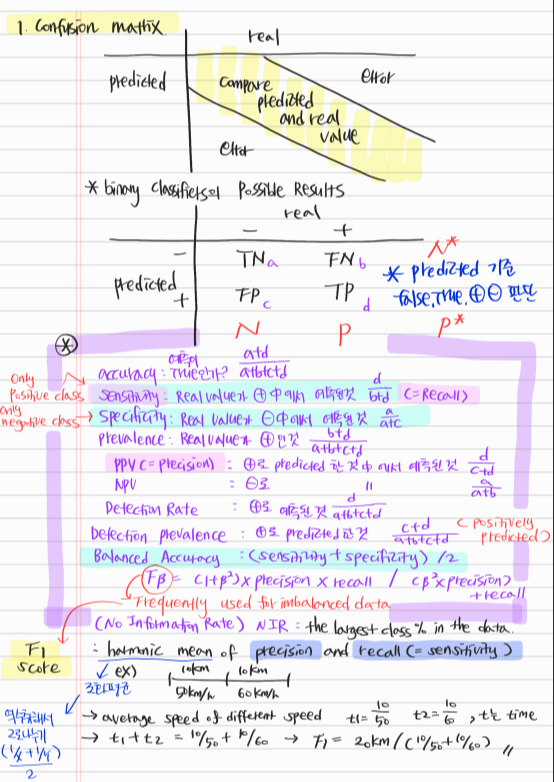 1. Confusion matrix.
real
predicted
Compare predicted and real value
error
error
* binary classifiers의 Possible Results
real
- +
- TN a FN b N*
predicted
+ FP c TP d P*
N P
* predicted 기준
false, true, ⊕⊖ 판단
*
accuracy: 예측이 True인가? a+d / a+b+c+d
Only positive class
Sensitivity: Real value가 ⊕中에서 예측된것 d / b+d (=Recall)
only negative class → Specificity: Real value가 ⊖中에서 예측된것 a / a+c
Prevalence: Real value가 ⊕인것 b+d / a+b+c+d
PPV (=Precision): ⊕로 predicted 한 것 中에서 예측된것 d / c+d
NPV : ⊖로 〃 a / a+b
Detection Rate : ⊕로 예측된것 d / a+b+c+d
Detection prevalence : ⊕로 predicted 한것 c+d / a+b+c+d (positively predicted)
Balanced Accuracy : (sensitivity + specificity) / 2
Fβ = (1+β²) × precision × recall / (β² × precision) + recall
Frequently used for imbalanced data.
(No Information Rate) NIR : the largest class % in the data.
F1 score : harmonic mean of precision and recall (= sensitivity)
조화평균
ex) 10km 10km
50km/h 60km/h
역수취해서
2로나누기
(1/x + 1/y) / 2
→ average speed of different speed t1 = 10/50 t2 = 10/60, t는 time
→ t1 + t2 = 10/50 + 10/60 → F1 = 20km / (10/50 + 10/60) //